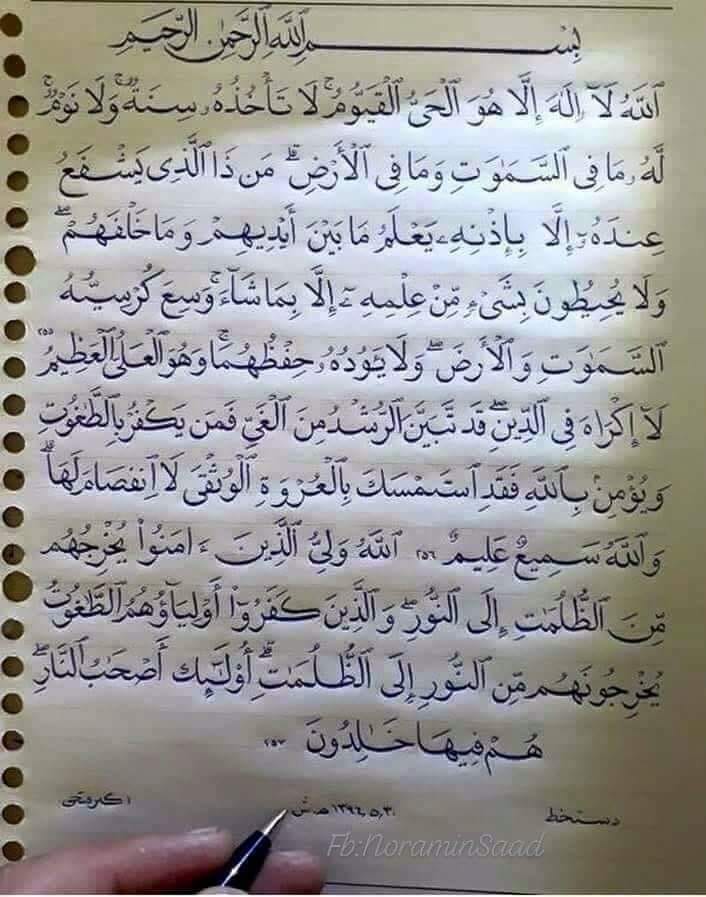 بِسْمِ ٱللَّهِ ٱلرَّحْمَٰنِ ٱلرَّحِيمِ
ٱللَّهُ لَآ إِلَٰهَ إِلَّا هُوَ ٱلْحَىُّ ٱلْقَيُّومُ ۚ لَا تَأْخُذُهُۥ سِنَةٌ وَلَا نَوْمٌ ۚ
لَّهُۥ مَا فِى ٱلسَّمَٰوَٰتِ وَمَا فِى ٱلْأَرْضِ ۗ مَن ذَا ٱلَّذِى يَشْفَعُ
عِندَهُۥٓ إِلَّا بِإِذْنِهِۦ ۚ يَعْلَمُ مَا بَيْنَ أَيْدِيهِمْ وَمَا خَلْفَهُمْ ۖ
وَلَا يُحِيطُونَ بِشَىْءٍ مِّنْ عِلْمِهِۦٓ إِلَّا بِمَا شَآءَ ۚ وَسِعَ كُرْسِيُّهُ
ٱلسَّمَٰوَٰتِ وَٱلْأَرْضَ ۖ وَلَا يَـُٔودُهُۥ حِفْظُهُمَا ۚ وَهُوَ ٱلْعَلِىُّ ٱلْعَظِيمُ ٢٥٥
لَآ إِكْرَاهَ فِى ٱلدِّينِ ۖ قَد تَّبَيَّنَ ٱلرُّشْدُ مِنَ ٱلْغَىِّ ۚ فَمَن يَكْفُرْ بِٱلطَّٰغُوتِ
وَيُؤْمِنۢ بِٱللَّهِ فَقَدِ ٱسْتَمْسَكَ بِٱلْعُرْوَةِ ٱلْوُثْقَىٰ لَا ٱنفِصَامَ لَهَا ۗ
وَٱللَّهُ سَمِيعٌ عَلِيمٌ ٢٥٦ ٱللَّهُ وَلِىُّ ٱلَّذِينَ ءَامَنُوا۟ يُخْرِجُهُم
مِّنَ ٱلظُّلُمَٰتِ إِلَى ٱلنُّورِ ۖ وَٱلَّذِينَ كَفَرُوٓا۟ أَوْلِيَآؤُهُمُ ٱلطَّٰغُوتُ
يُخْرِجُونَهُم مِّنَ ٱلنُّورِ إِلَى ٱلظُّلُمَٰتِ ۗ أُو۟لَٰٓئِكَ أَصْحَٰبُ ٱلنَّارِ ۖ
هُمْ فِيهَا خَٰلِدُونَ ٢٥٧
دستخط ١٣٩٤,٥,٣٠ هـ ش
Fb:NoraminSaad